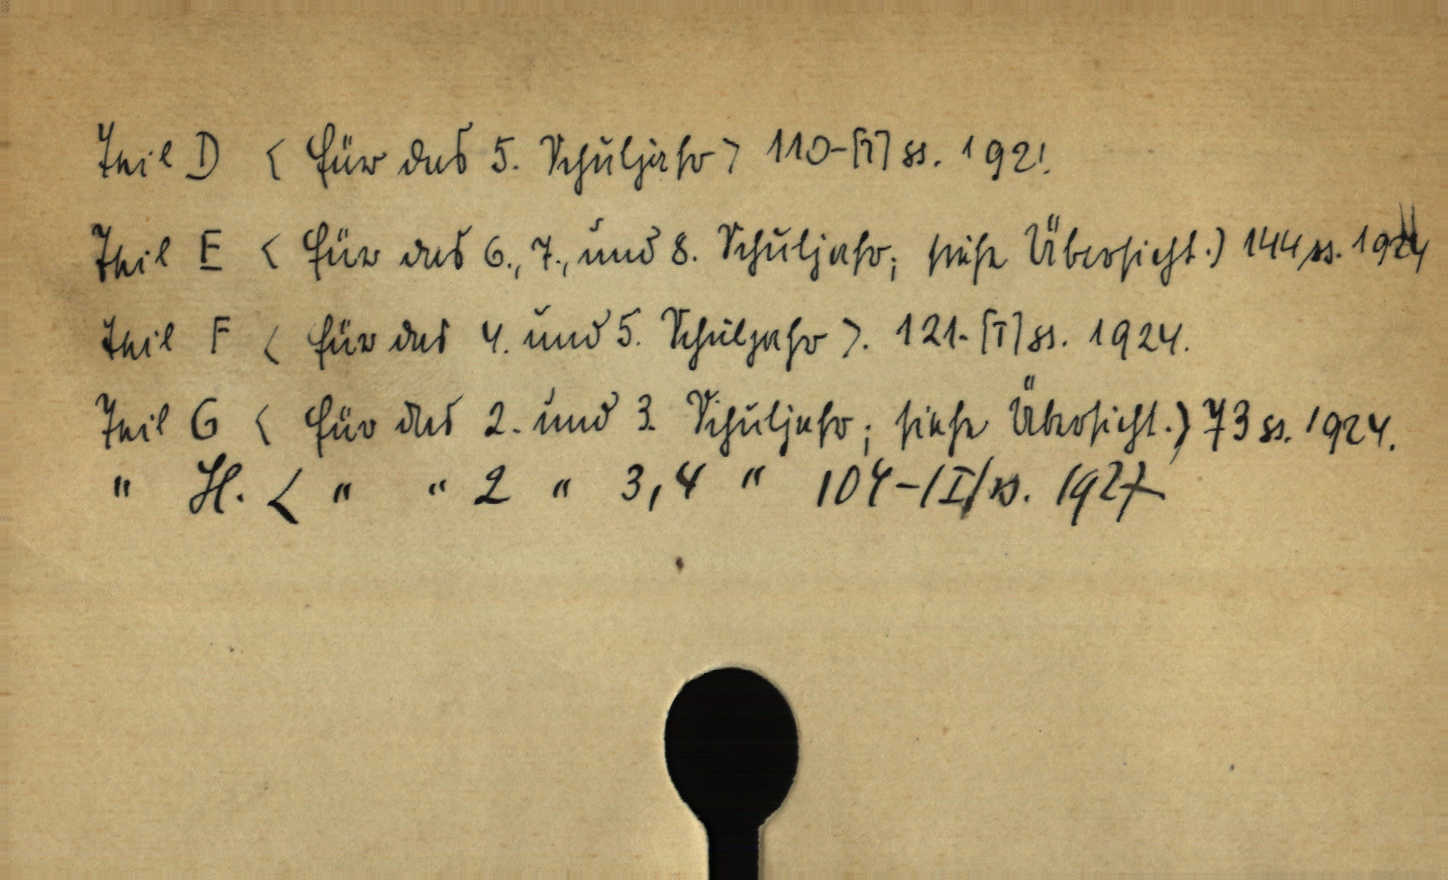 Teil D < für das 5. Schuljahr > 110-[1] ss. 1921.
Teil E < für das 6., 7., und 8. Schuljahr; siehe Übersicht.) 144 ss. 1924
Teil F < für das 4. und 5. Schuljahr >. 121-[1] ss. 1924.
Teil G < für das 2. und 3. Schuljahr; siehe Übersicht.) 73 ss. 1924.
" H. < " " 2 " 3, 4 " 104-/I/ ss. 1927